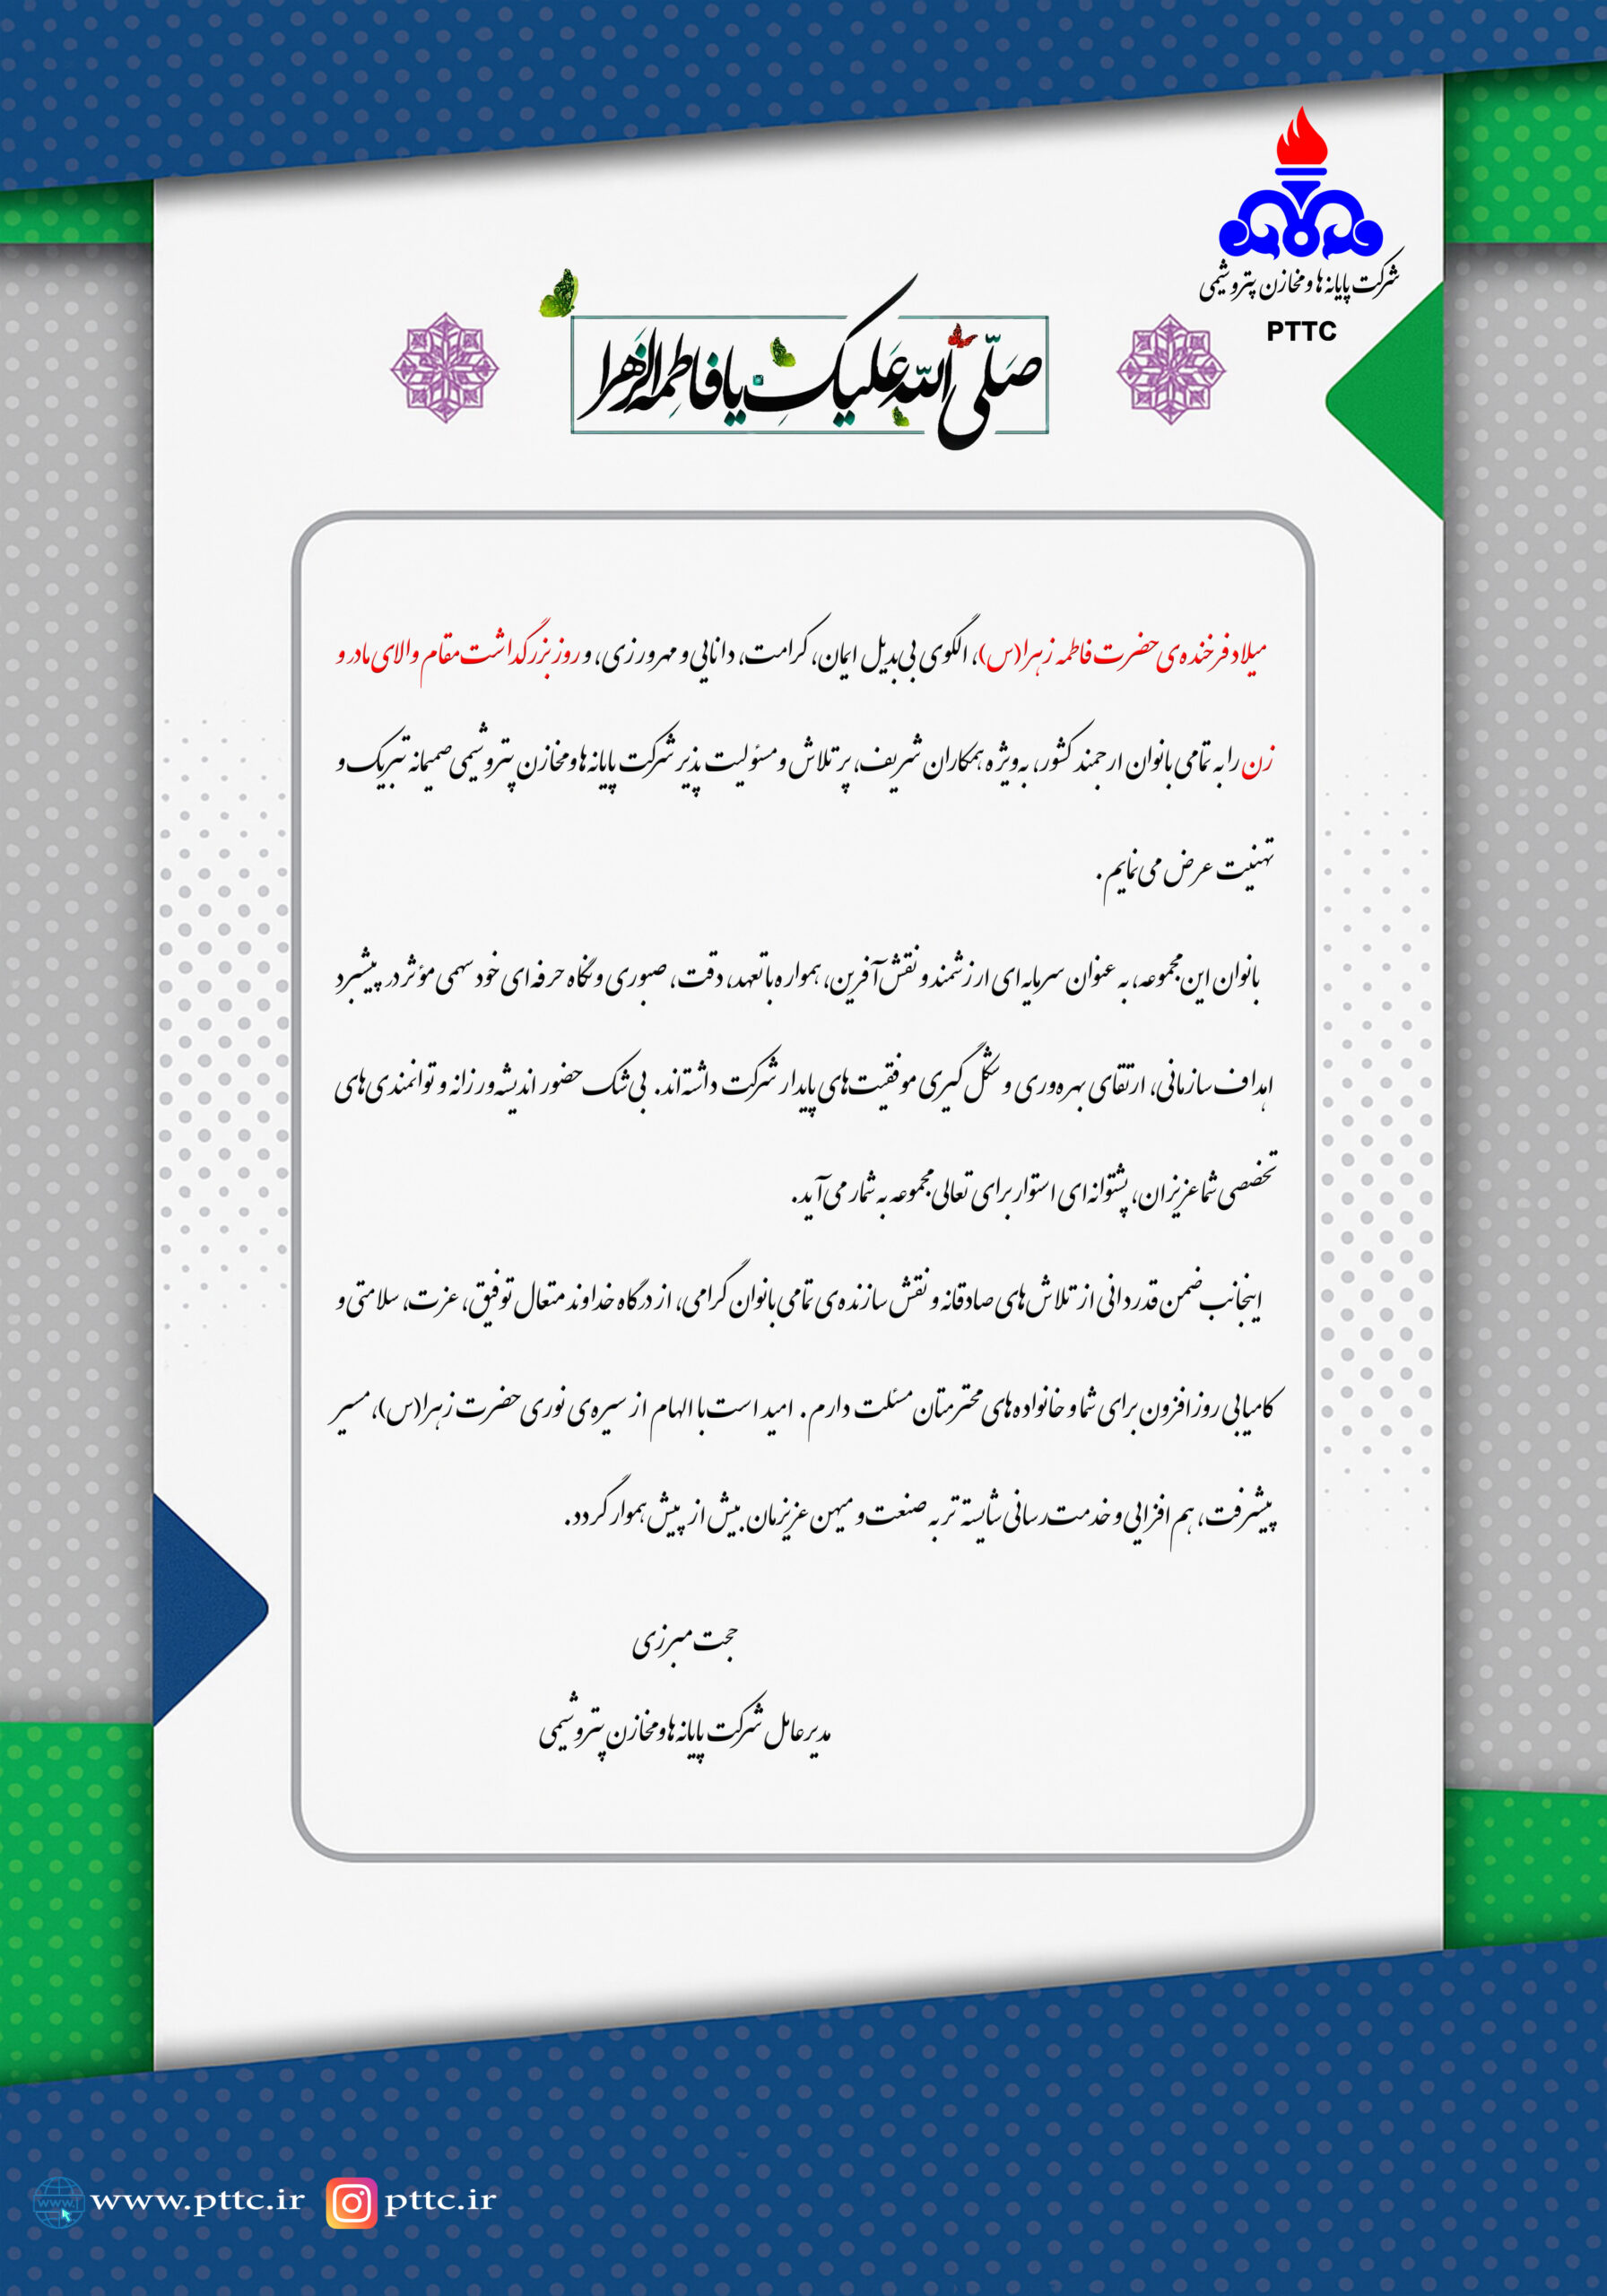 شرکت پایانه ها و مخازن پتروشیمی
PTTC
صَلَّی اللهُ عَلیکِ یا فاطِمَةُ الزَهرا
میلاد فرخنده‌ی حضرت فاطمه زهرا(س)، الگوی بی‌بدیل ایمان، کرامت، دانایی و مهرورزی، و روز بزرگداشت مقام والای مادر و
زن را به تمامی بانوان ارجمند کشور، به‌ویژه همکاران شریف، پرتلاش و مسئولیت پذیر شرکت پایانه ها و مخازن پتروشیمی صمیمانه تبریک و
تهنیت عرض می‌نمایم.
بانوان این مجموعه، به عنوان سرمایه‌ای ارزشمند و نقش‌آفرین، همواره با تعهد، دقت، صبوری و نگاه حرفه‌ای خود سهمی مؤثر در پیشبرد
اهداف سازمانی، ارتقای بهره‌وری و شکل گیری موفقیت‌های پایدار شرکت داشته‌اند. بی‌شک حضور اندیشه‌ورزانه و توانمندی‌های
تخصصی شما عزیزان، پشتوانه‌ای استوار برای تعالی مجموعه به شمار می‌آید.
اینجانب ضمن قدردانی از تلاش‌های صادقانه و نقش سازنده‌ی تمامی بانوان گرامی، از درگاه خداوند متعال توفیق، عزت، سلامتی و
کامیابی روزافزون برای شما و خانواده‌های محترمتان مسئلت دارم. امید است با الهام از سیره‌ی نوری حضرت زهرا(س)، مسیر
پیشرفت، هم افزایی و خدمت‌رسانی شایسته تر به صنعت و میهن عزیزمان بیش از پیش هموار گردد.
حجت میرزی
مدیرعامل شرکت پایانه ها و مخازن پتروشیمی
www.pttc.ir pttc.ir